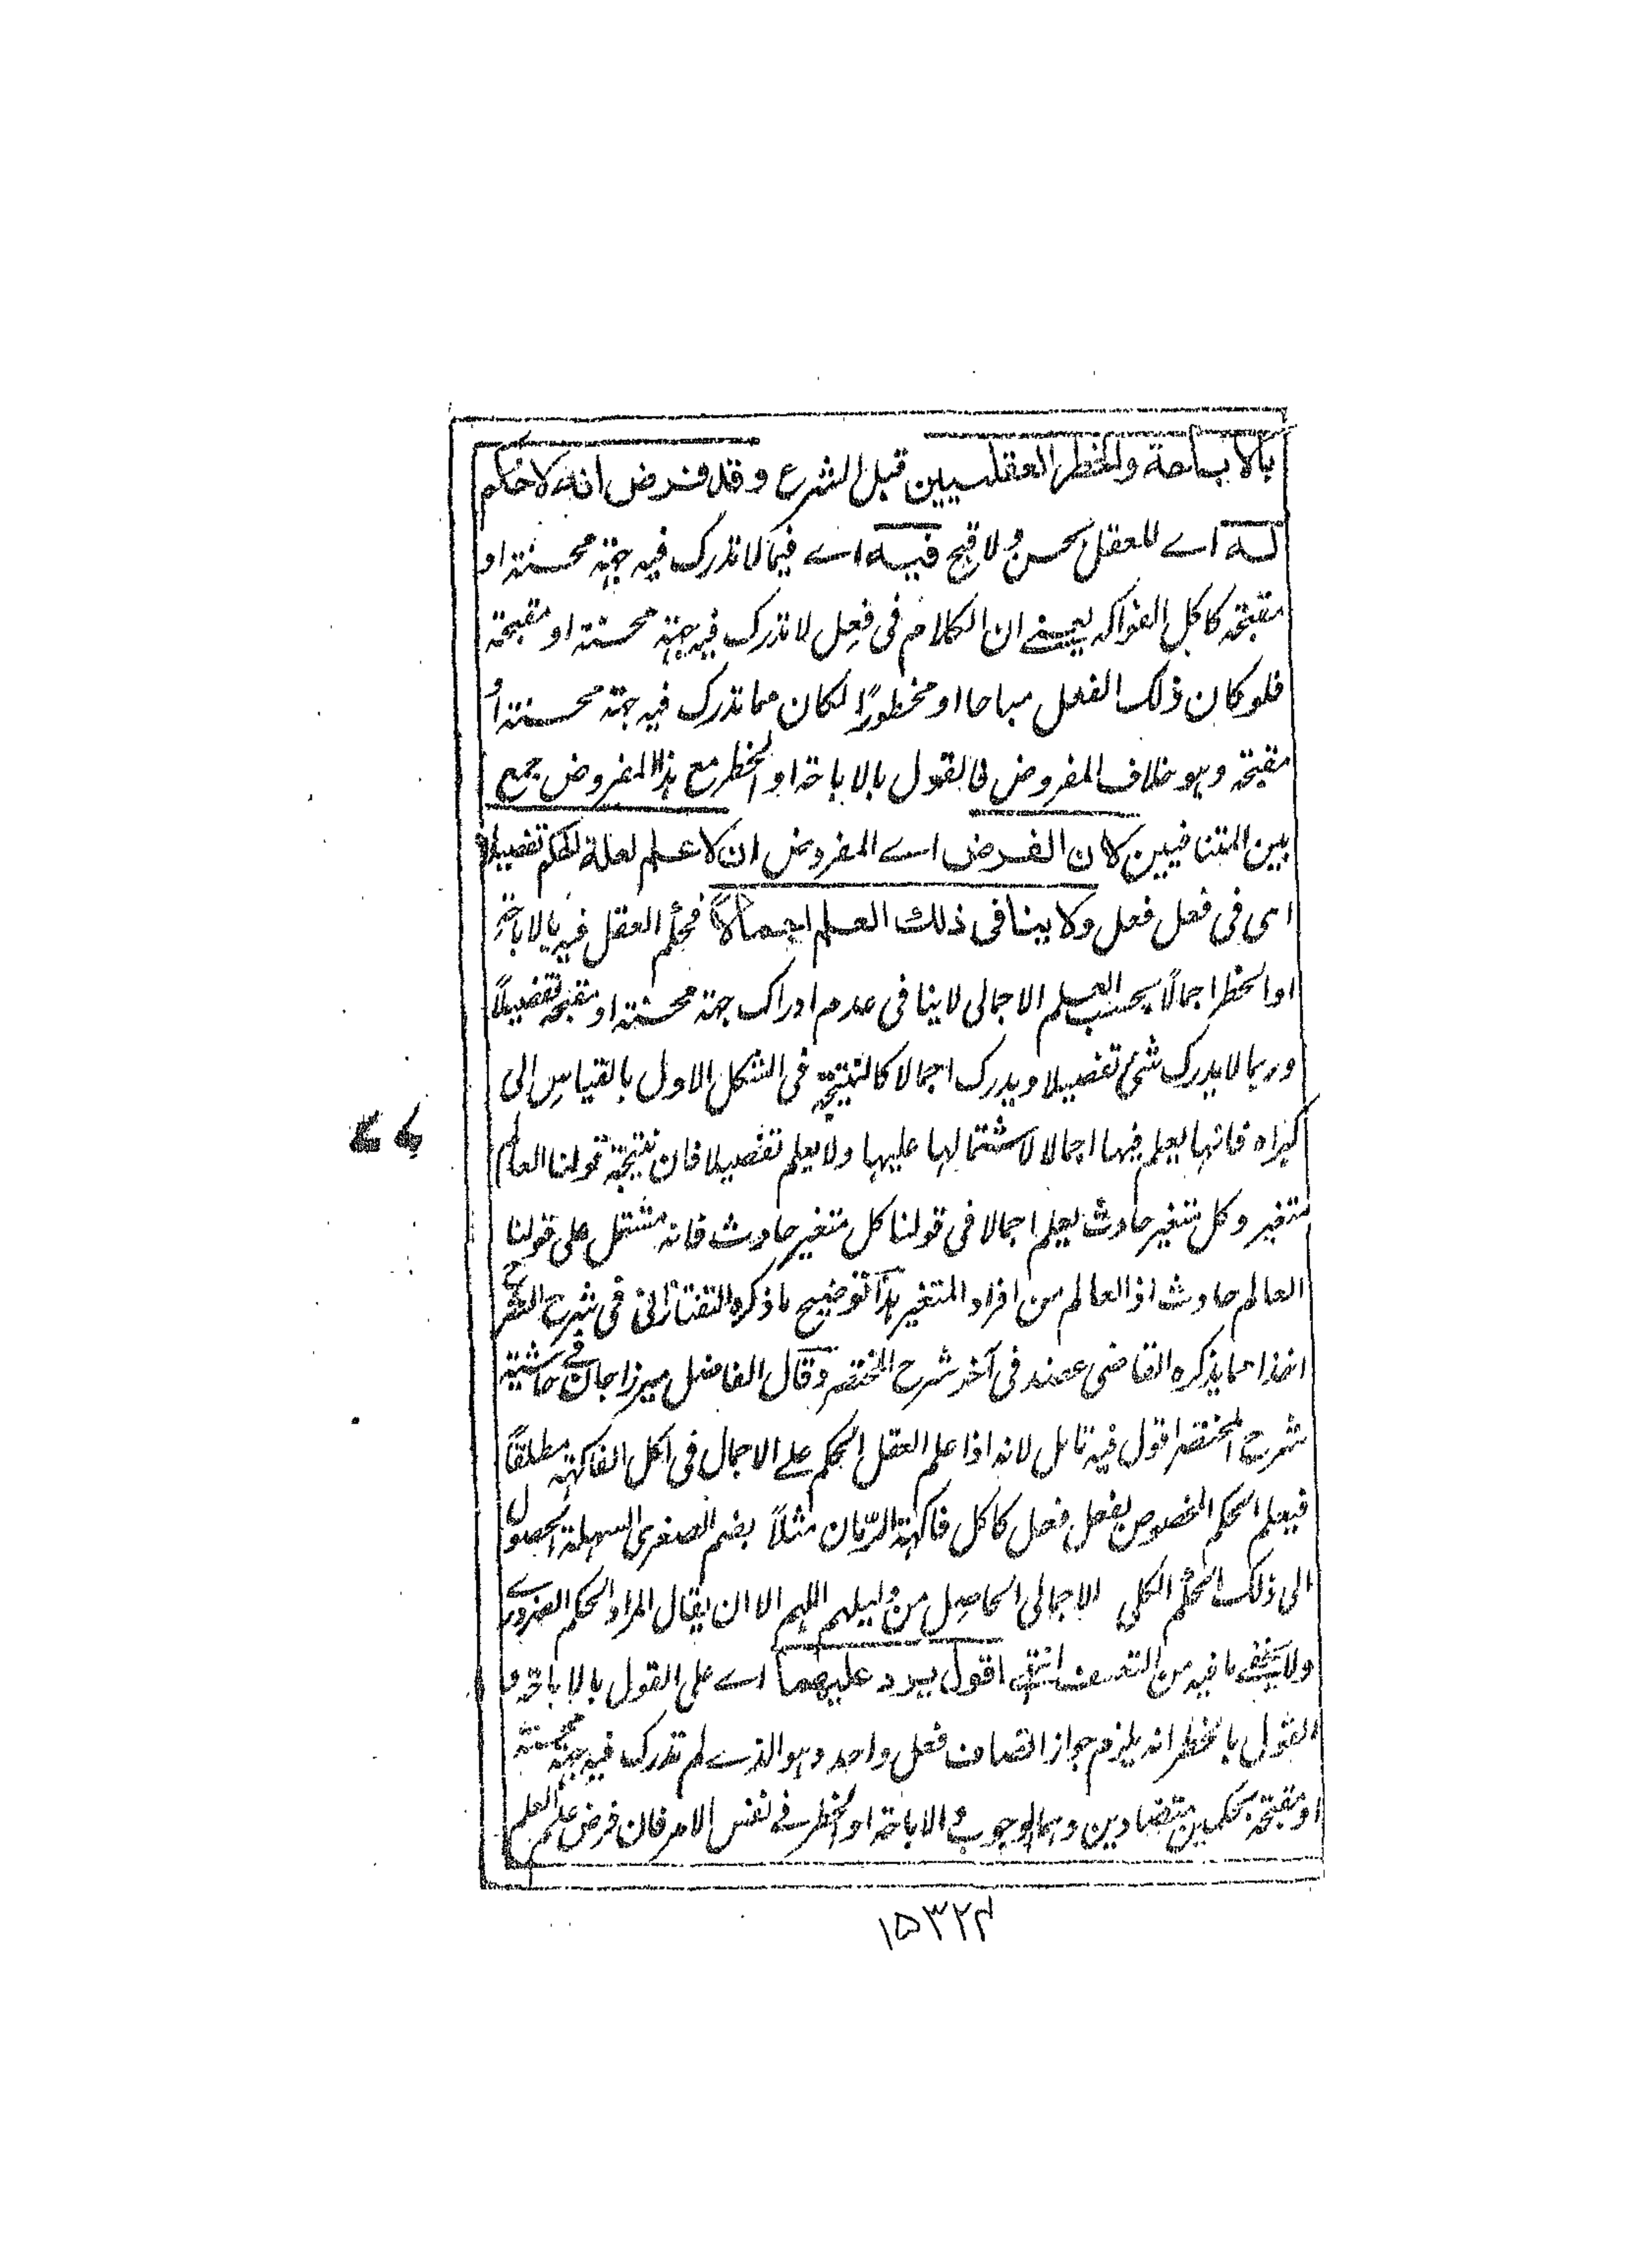 بالاباحة والحظر العقليين قبل الشرع وقد فرض انه لا حكم
له اے للعقل بحسن ولا قبح فيه اے فيما لا تدرك فيه جهة محسنة او
مقبحة كاكل الفواكه يعنے ان الكلام فى فعل لا تدرك فيه جهة محسنة او مقبحة
فلو كان ذلك الفعل مباحا او محظورًا لكان مما تدرك فيه جهة محسنة أو
مقبحة وهو خلاف المفروض فالقول بالاباحة او الحظر مع هذا المفروض جمع
بين المتنافيين لان الفرض اے المفروض ان لا علم لعلة الحكم تفصيلا
اى فى فعل فعل ولا ينافى ذلك العلم اجمالاً فحكم العقل فيه بالاباحة
او الحظر اجمالاً بحسب العلم الاجمالى لا ينافى عدم ادراك جهة محسنة او مقبحة تفصيلاً
وربما لا يدرك شئ تفصيلا ويدرك اجمالا كالنتيجة فى الشكل الاول بالقياس الى
كبراه فانها يعلم فيها اجمالا لاشتمالها عليها ولا يعلم تفصيلا فان نتيجة قولنا العالم
متغير وكل متغير حادث يعلم اجمالا فى قولنا كل متغير حادث فانه مشتمل على قولنا
العالم حادث اذ العالم من افراد المتغير هذا توضيح ما ذكره التفتازانى فى شرح الشرح
اخذا مما يذكره القاضى عضد فى آخر شرح المختصر وقال الفاضل ميرزا جان فے حاشية
شرح المختصر اقول فيه تامل لانه اذا علم العقل الحكم علے الاجمال فى اكل الفاكهة مطلقاً
فيعلم الحكم المخصوص بفعل فعل كاكل فاكهة الرمّان مثلاً بضم الصغرى السهلة الحصول
الى ذلك الحكم الكلى الاجمالى الحاصل من دليلهم اللهم الا ان يقال المراد الحكم الضرورے
ولا يخفے ما فيه من التعسف انتهى اقول يرد عليهما اے على القول بالاباحة و
القول بالحظر انه يلزم جواز اتصاف فعل واحد وهو الذے لم تدرك فيه جهة محسنة
او مقبحة بحكمين متضادين وهما الوجوب والاباحة او الحظر فے نفس الامر فان فرض عدم العلم
۷۷
۱۵۳۲۴